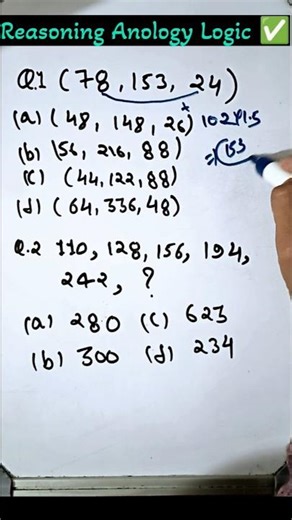 Reasoning Anology Logic ✅
Q.1 (78, 153, 24)
(a) (48, 148, 26) 102×1.5
(b) (56, 216, 88) =153
(c) (44, 122, 88)
(d) (64, 336, 48)
Q.2 110, 128, 156, 194,
242, ?
(a) 280 (c) 623
(b) 300 (d) 234